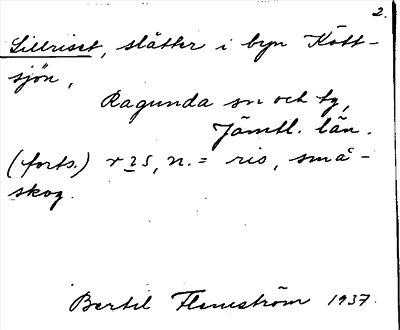 2.
Lillriset, slåtter i byn Kött-
sjön,
Ragunda sn och tg,
Jämtl. län.
(forts.) r2s, n. = ris, små-
skog.
Bertil Flemström 1937.